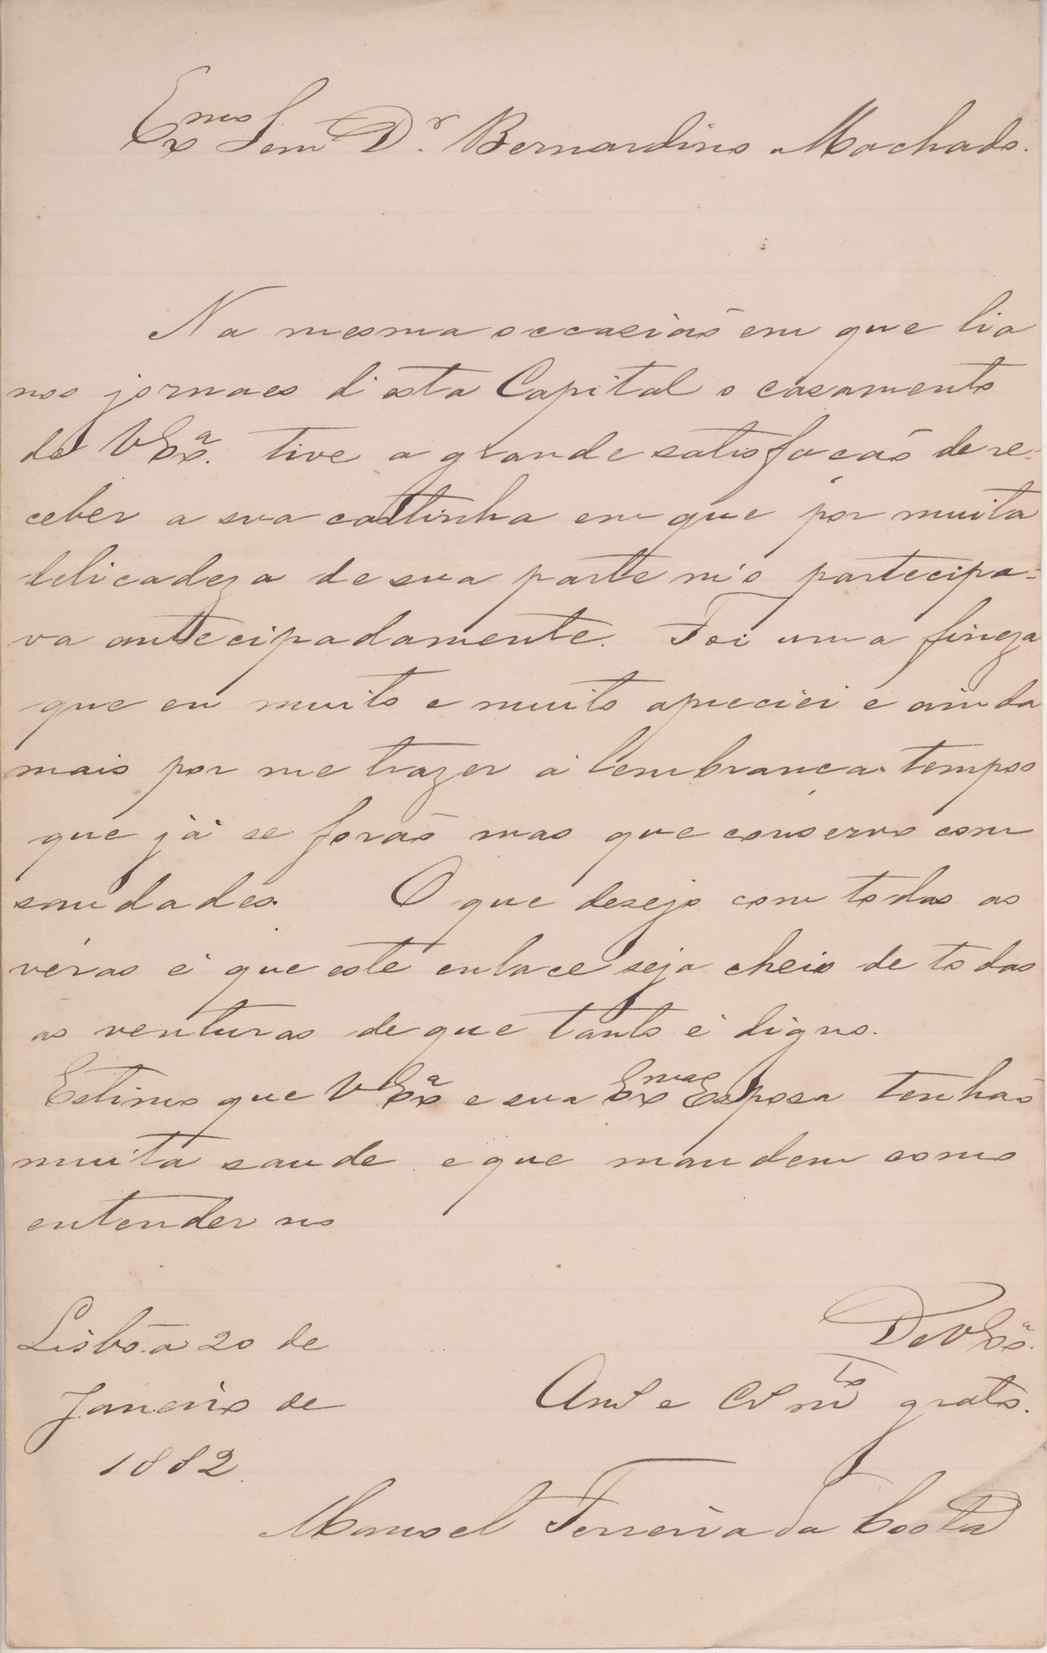 Exmo Senr Dr. Bernardino Machado.
Na mesma occasião em que lia
nos jornaes d'esta Capital o casamento
de V Exa. tive a grande satisfação de re-
ceber a sua cartinha em que por muita
delicadeza de sua parte m'o partecipa-
va antecipadamente. Foi uma fineza
que eu muito e muito apreciei e ainda
mais por me trazer á lembrança tempos
que já se forão mas que conservo com
saudades. O que desejo com todas as
véras é que este enlace seja cheio de todas
as venturas de que tanto é digno.
Estimo que V Exa e sua Exma Esposa tenhão
muita saude e que mandem como
entender no
De V Exa.
Amo e Cro mto grato.
Manoel Ferreira da Costa
Lisbôa 20 de
Janeiro de
1882